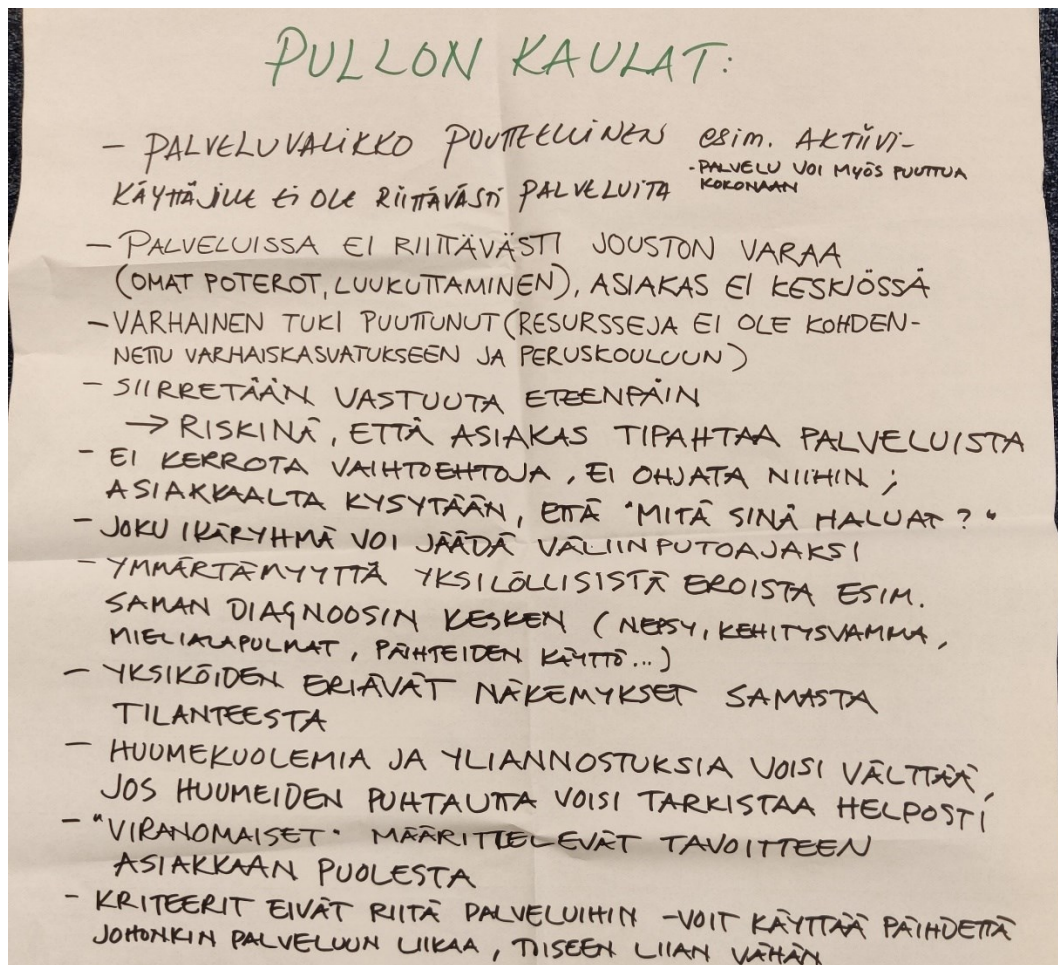 PULLON KAULAT:
- PALVELUVALIKKO PUUTTEELLINEN esim. AKTIIVI-
KÄYTTÄJILLE Ei OLE RIITTÄVÄSTI PALVELUITA
- PALVELU VOI MYÖS PUUTTUA
KOKONAAN
- PALVELUISSA EI RIITTÄVÄSTI JOUSTON VARAA
(OMAT POTEROT, LUUKUTTAMINEN), ASIAKAS EI KESKIÖSSÄ
- VARHAINEN TUKI PUUTTUNUT (RESURSSEJA EI OLE KOHDEN-
NETTU VARHAISKASVATUKSEEN JA PERUSKOULUUN)
- SIIRRETÄÄN VASTUUTA ETEENPÄIN
→ RISKINÄ, ETTÄ ASIAKAS TIPAHTAA PALVELUISTA
- EI KERROTA VAIHTOEHTOJA, EI OHJATA NIIHIN ;
ASIAKKAALTA KYSYTÄÄN, ETTÄ "MITÄ SINÄ HALUAT?"
- JOKU IKÄRYHMÄ VOI JÄÄDÄ VÄLIINPUTOAJAKSI
- YMMÄRTÄMYYTTÄ YKSILÖLLISISTÄ EROISTA ESIM.
SAMAN DIAGNOOSIN KESKEN (NEPSY, KEHITYSVAMMA,
MIELIALAPULMAT, PÄIHTEIDEN KÄYTTÖ...)
- YKSIKÖIDEN ERIÄVÄT NÄKEMYKSET SAMASTA
TILANTEESTA
- HUUMEKUOLEMIA JA YLIANNOSTUKSIA VOISI VÄLTTÄÄ,
JOS HUUMEIDEN PUHTAUTTA VOISI TARKISTAA HELPOSTI
- "VIRANOMAISET" MÄÄRITTELEVÄT TAVOITTEEN
ASIAKKAAN PUOLESTA
- KRITEERIT EIVÄT RIITÄ PALVELUIHIN - VOIT KÄYTTÄÄ PÄIHDETTÄ
JOHONKIN PALVELUUN LIIKAA, TOISEEN LIIAN VÄHÄN